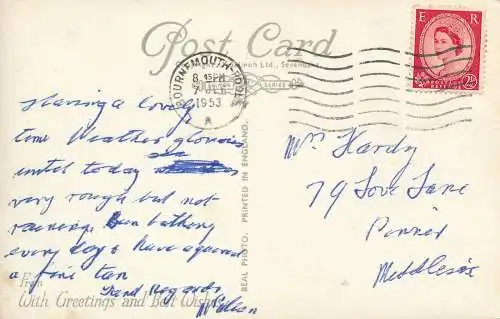 Post Card
E R
2½
BOURNEMOUTH-POOLE
8. 15PM
1953
A
SERIES
Having a lovely
time Weather glorious
until today sea
very rough but not
raining. Been bathing
every day & have acquired
a fine tan
Kind Regards,
From
With Greetings and Best Wishes
REAL PHOTO. PRINTED IN ENGLAND.
Mrs Hardy
79 Love Lane
Pinner
Middlesex